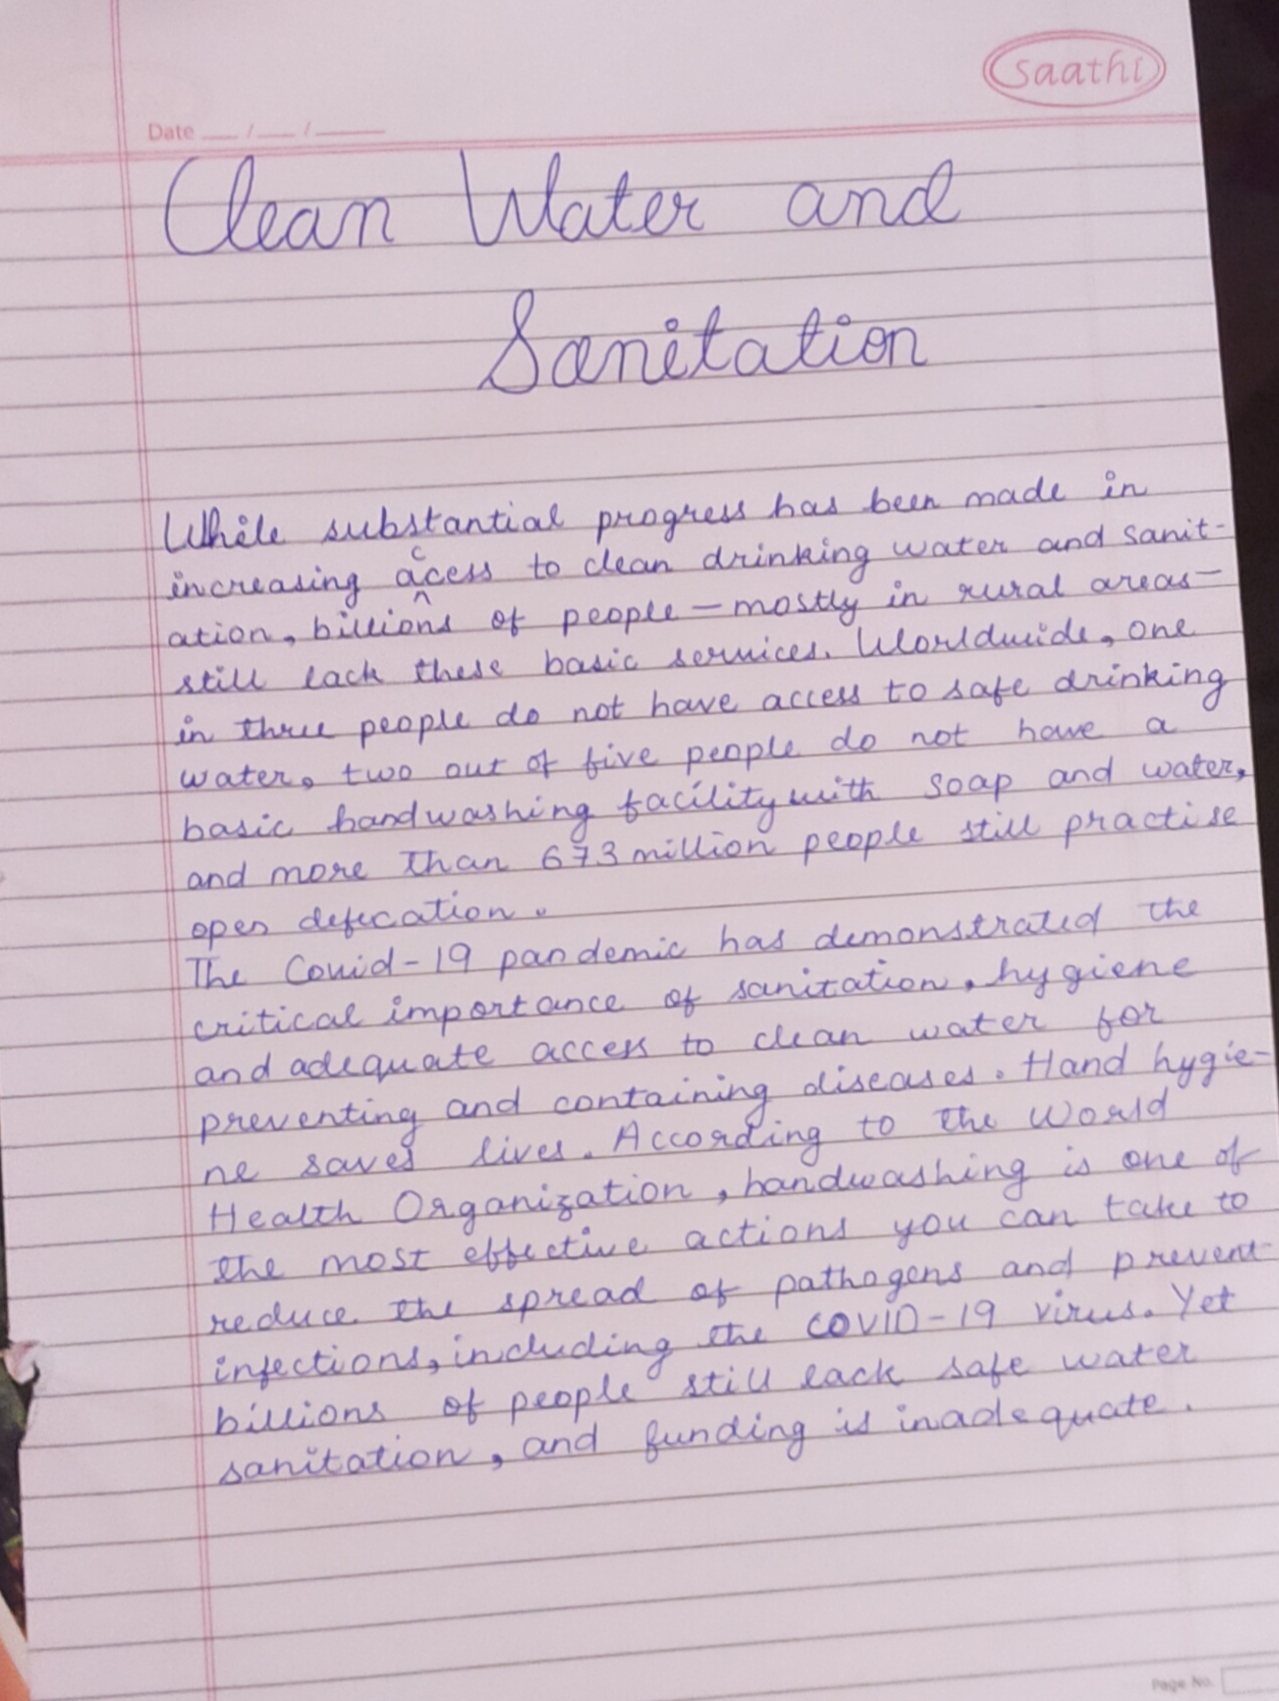 saathi
Date __/__/____
Clean Water and
Sanitation
While substantial progress has been made in
increasing access to clean drinking water and sanit-
ation, billions of people — mostly in rural areas —
still lack these basic services. Worldwide, one
in three people do not have access to safe drinking
water, two out of five people do not have a
basic handwashing facility with soap and water,
and more than 673 million people still practise
open defecation.
The Covid-19 pandemic has demonstrated the
critical importance of sanitation, hygiene
and adequate access to clean water for
preventing and containing diseases. Hand hygie-
ne saves lives. According to the World
Health Organization, handwashing is one of
the most effective actions you can take to
reduce the spread of pathogens and prevent
infections, including the COVID-19 virus. Yet
billions of people still lack safe water
sanitation, and funding is inadequate.
Page No.